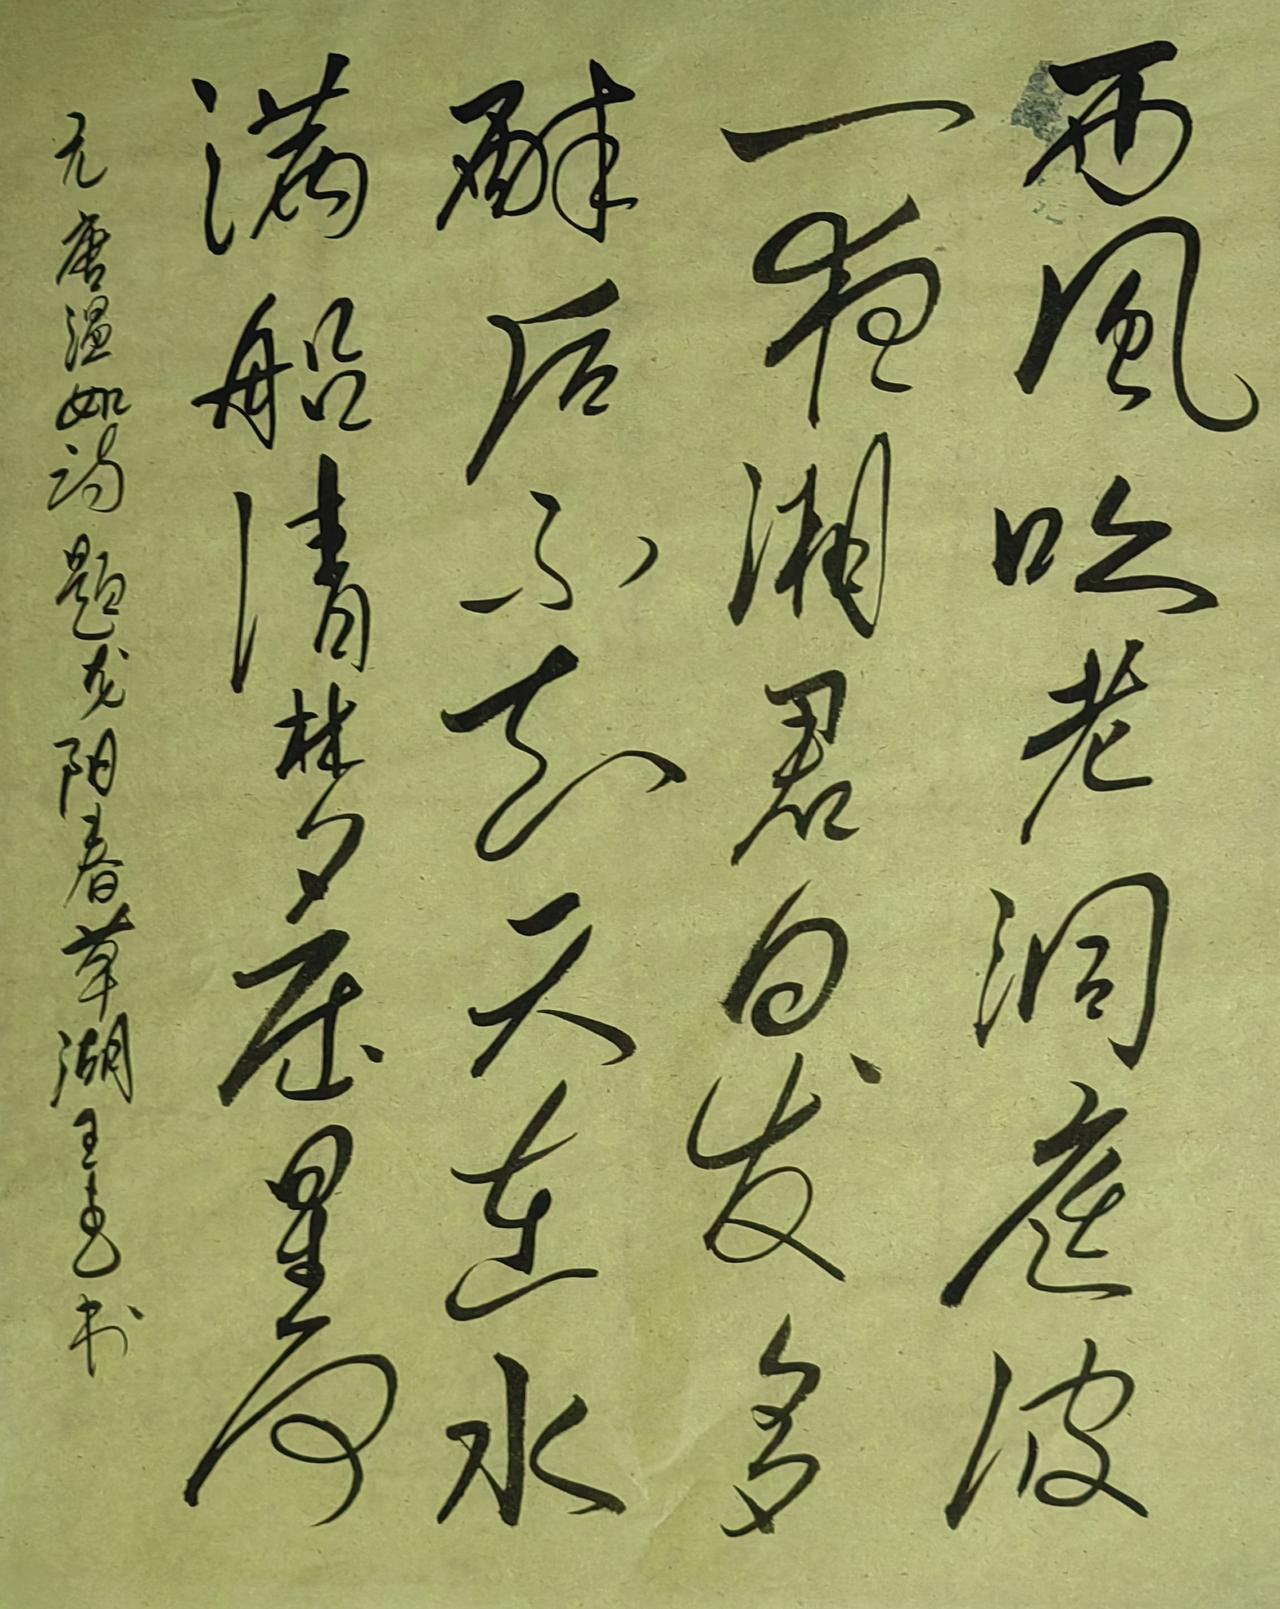 西風吹老洞庭波
一夜湘君白发多
醉后不知天在水
满船清梦压星河
元唐温如诗题龙阳春草湖王书